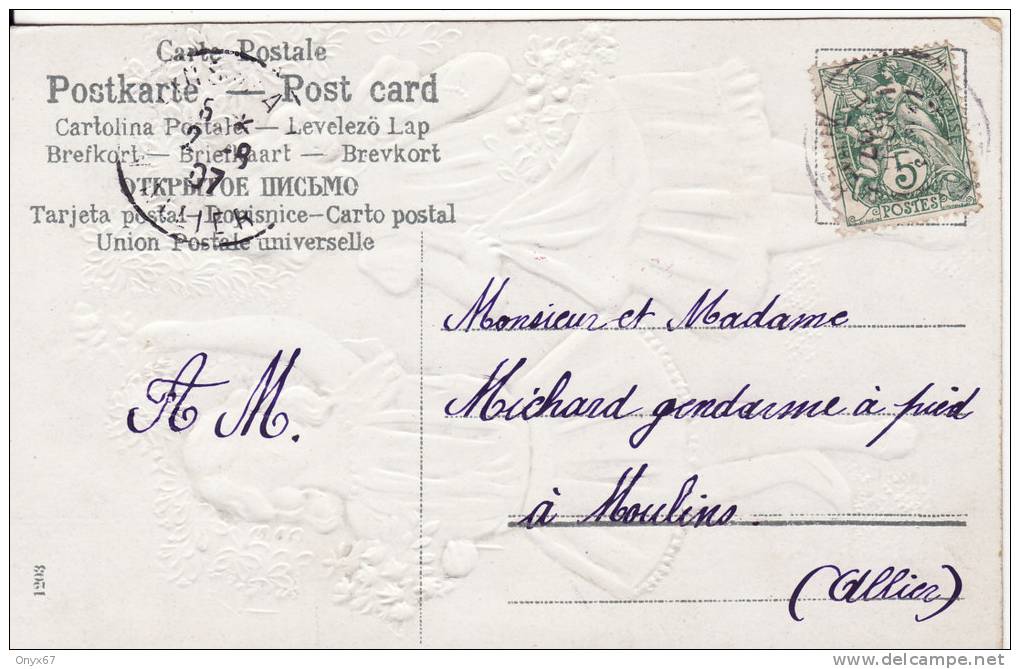 Carte Postale
Postkarte — Post card
Cartolina Postale — Levelező Lap
Brefkort — Briefkaart — Brevkort
ОТКРЫТОЕ ПИСЬМО
Tarjeta postal — Dopisnice — Carto postal
Union Postale universelle
5
-9
07
5c
POSTES
Monsieur et Madame
Michard gendarme à pied
à Moulins.
(Allier)
A M.
1203
Onyx67
http://www.delcampe.net